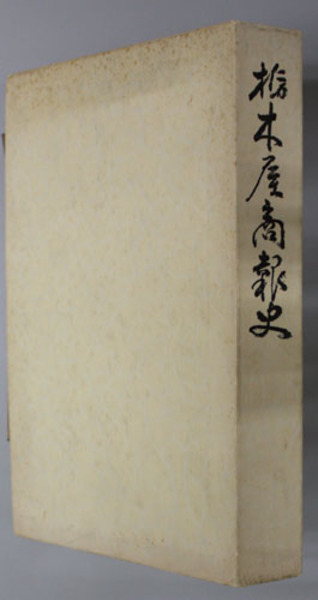 栃木屋商報史